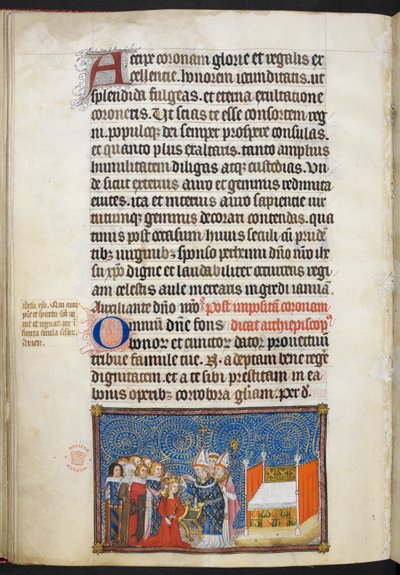 Accipe coronam glorie et regalis ex
cellentie. honorem iocunditatis. ut
splendida fulgeas. et eterna exultatione
coroneris. Ut scias te esse consortem reg
ni. populoq; dei semper prospere consulas.
et quanto plus exaltaris. tanto amplius
humilitatem diligas atq; custodias. Un
de sicut exterius auro et gemmis redimita
enites. ita et interius auro sapientie uir
tutumq; gemmis decorari contendas. qua
tinus post occasum huius seculi cū prudē
tibus uirginibꝰ sponso perhenni dñō nr̄o ihe
su xp̄o digne et laudabiliter occurrens regi
am celestis aule merearis ingredi ianuā.
Auxiliante dñō nr̄o. Post impositā coronam
Omniū dñe fons dicat archiepiscopꝰ
bonor̄ et cunctor̄ dator prouectuum
tribue famule tue. N. adeptam bene rege̅
dignitatem. et a te sibi prestitam in ea
bonis operibꝰ corrobora gl̄iam. per d̄.
ihesu xp̄o. Qui cum